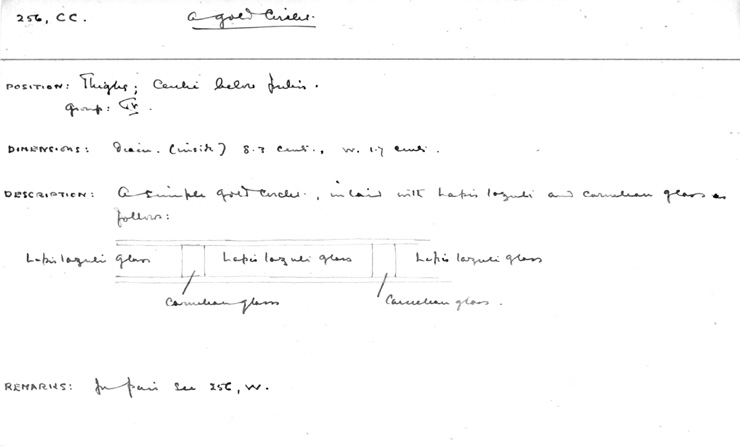 256, CC. A gold Circlet.
POSITION: Thighs; Centre below Pubis.
Group: IV.
DIMENSIONS: Diam. (inside) 8.3 cents., W. 1.7 cents.
DESCRIPTION: A simple gold circlet, inlaid with Lapis lazuli and carnelian glass as
follows:
Lapis lazuli glass Lapis lazuli glass Lapis lazuli glass
Carnelian glass Carnelian glass.
REMARKS: For pair see 256, W.